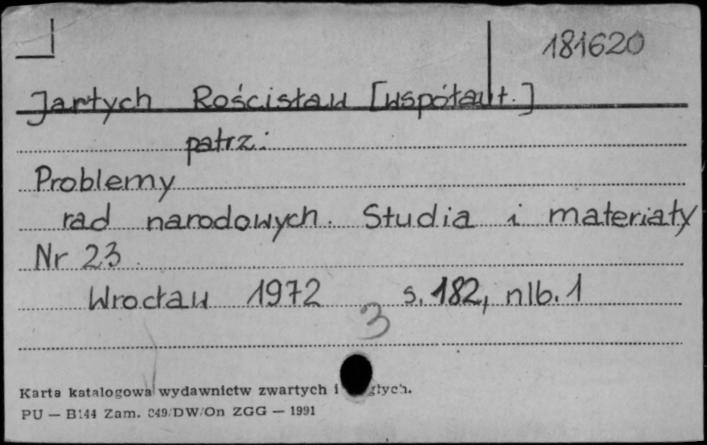 181620
Jartych Rościsław [współaut.]
patrz:
Problemy
rad narodowych. Studia i materiały
Nr 23
Wrocław 1972 s. 182, nlb. 1
3
Karta katalogowa wydawnictw zwartych i
PU — B144 Zam. 649/DW/On ZGG — 1991